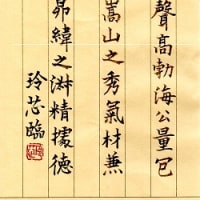 聲高勃海公量包
嵩山之秀氣材兼
昴緯之淋精據德
玲芯臨